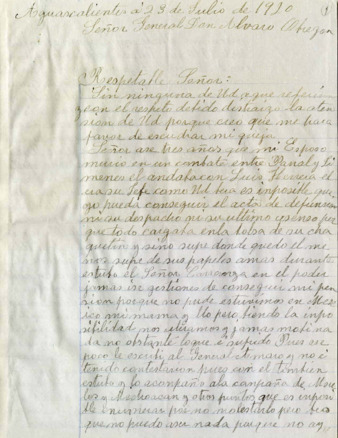 Aguascalientes a 23 de Julio de 1920 (1
Señor General Don Alvaro Obregon
Respetable Señor:
Sin ninguna de Ud a que referirme
con el respeto debido destraigo la aten
sion de Ud porque creo que me hara
favor de escuchar mi queja
Señor ase tres años que mi Esposo
murio en un combate entre Parral y Ji
menes el andaba con Luis Herrera el
era su Jefe como Ud vera es imposible que
yo pueda conseguir el acta de defuncion
ni su despacho ni su ultimo
que todo cargaba en la bolsa de su cha
queta y si no supe donde quedo el me
nos supe de sus papeles a mas durante
estubo el Señor Carranza en el poder
jamas ise gestiones de conseguir mi pen
sion porque no pude estuvimos en Mex
ico mi mama y Yo pero biendo la impo
sibilidad nos y jamas
da no obstante lo que e sufrido Pues
poco le escribi al General Amaro y no e
tenido contestacion pues con el tambien
estubo y lo acompaño a la campaña de More
los y Mechoacan y otros puntos que es imposi
ble por no molestarlo pero
que no puedo aser nada porque no ay